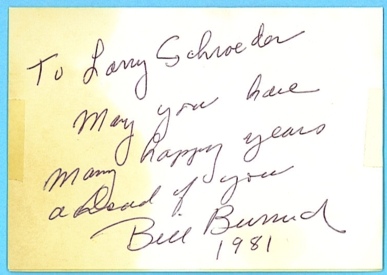 To Larry Schroeder
May you have
many happy years
ahead of you
Bill Burrud
1981